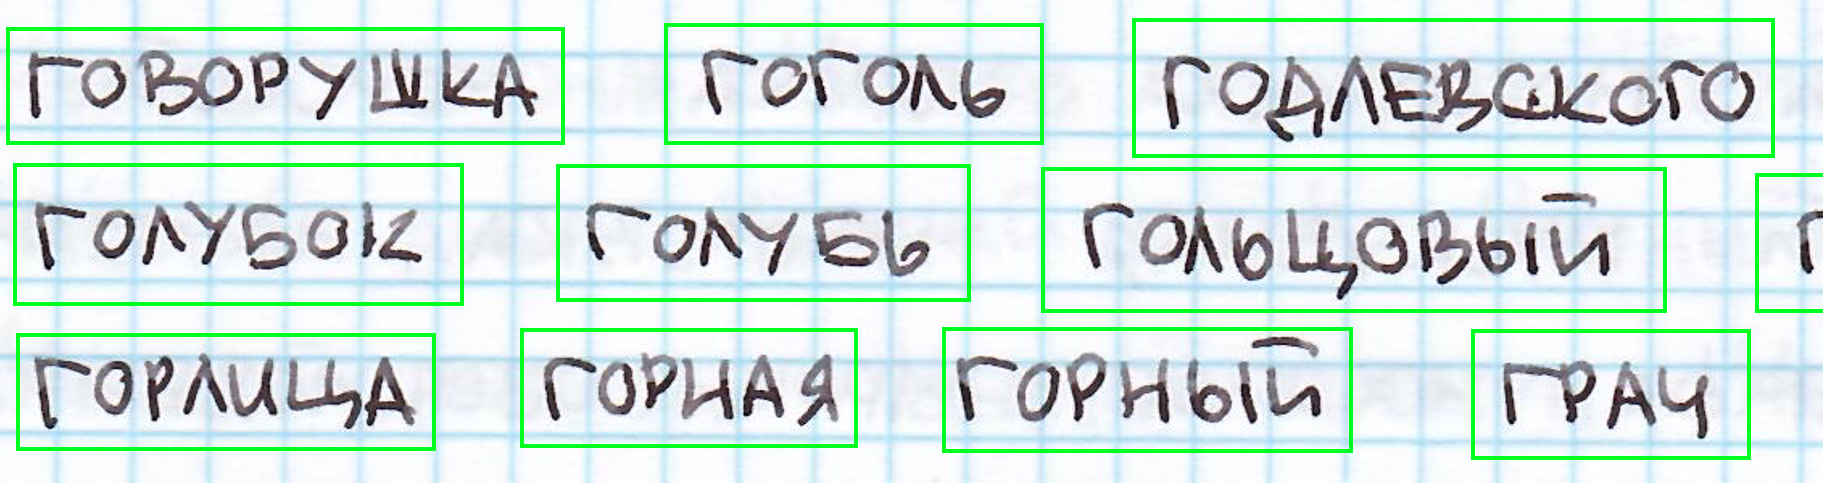 ГОВОРУШКА ГОГОЛЬ ГОДЛЕВСКОГО
ГОЛУБОК ГОЛУБЬ ГОЛЬЦОВЫЙ
ГОРЛИЦА ГОРНАЯ ГОРНЫЙ ГРАЧ